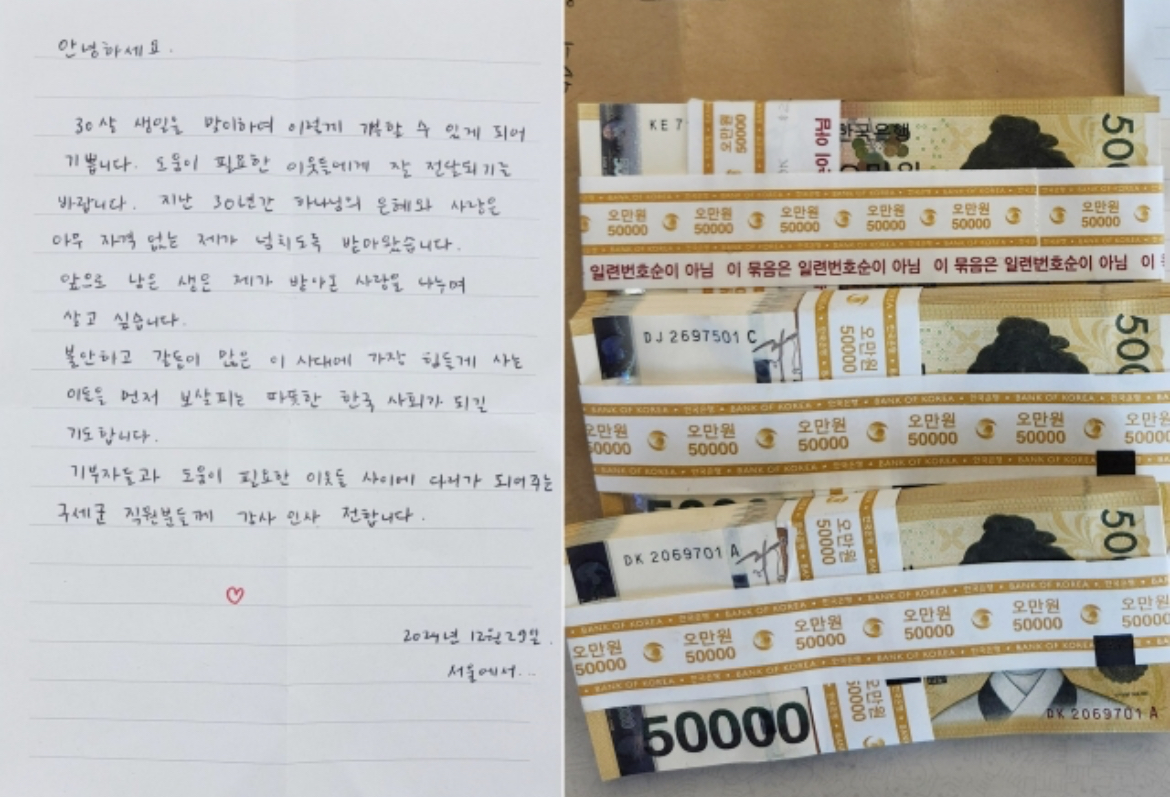 안녕하세요.
30살 생일을 맞이하여 이렇게 기부할 수 있게 되어
기쁩니다. 도움이 필요한 이웃들에게 잘 전달되기를
바랍니다. 지난 30년간 하나님의 은혜와 사랑을
아무 자격 없는 제가 넘치도록 받아왔습니다.
앞으로 남은 생은 제가 받아온 사랑을 나누며
살고 싶습니다.
불안하고 갈등이 많은 이 시대에 가장 힘들게 사는
이들을 먼저 보살피는 따뜻한 한국 사회가 되길
기도합니다.
기부자들과 도움이 필요한 이웃들 사이에 다리가 되어주는
구세군 직원분들께 감사 인사 전합니다.
2024년 12월 29일.
서울에서...
KE 7
오만원 50000
한국은행
500
BANK OF KOREA 한국은행 BANK OF KOREA 한국은행 BANK OF KOREA
오만원 오만원 오만원 오만원 오만원 오만원
50000 50000 50000 50000 50000 50000
일련번호순이 아님 이 묶음은 일련번호순이 아님 이 묶음은 일련번호순이 아님 이
DJ 2697501 C
오만원 50000
500
BANK OF KOREA 한국은행 BANK OF KOREA 한국은행 BANK OF KOREA
오만원 오만원 오만원 오만원 오만원 오만원
50000 50000 50000 50000 50000 50000
DK 2069701 A
오만원 50000
500
BANK OF KOREA 한국은행 BANK OF KOREA 한국은행 BANK OF KOREA
오만원 오만원 오만원 오만원 오만원 오만원
50000 50000 50000 50000 50000 50000
50000
오만원 50000
DK 2069701 A